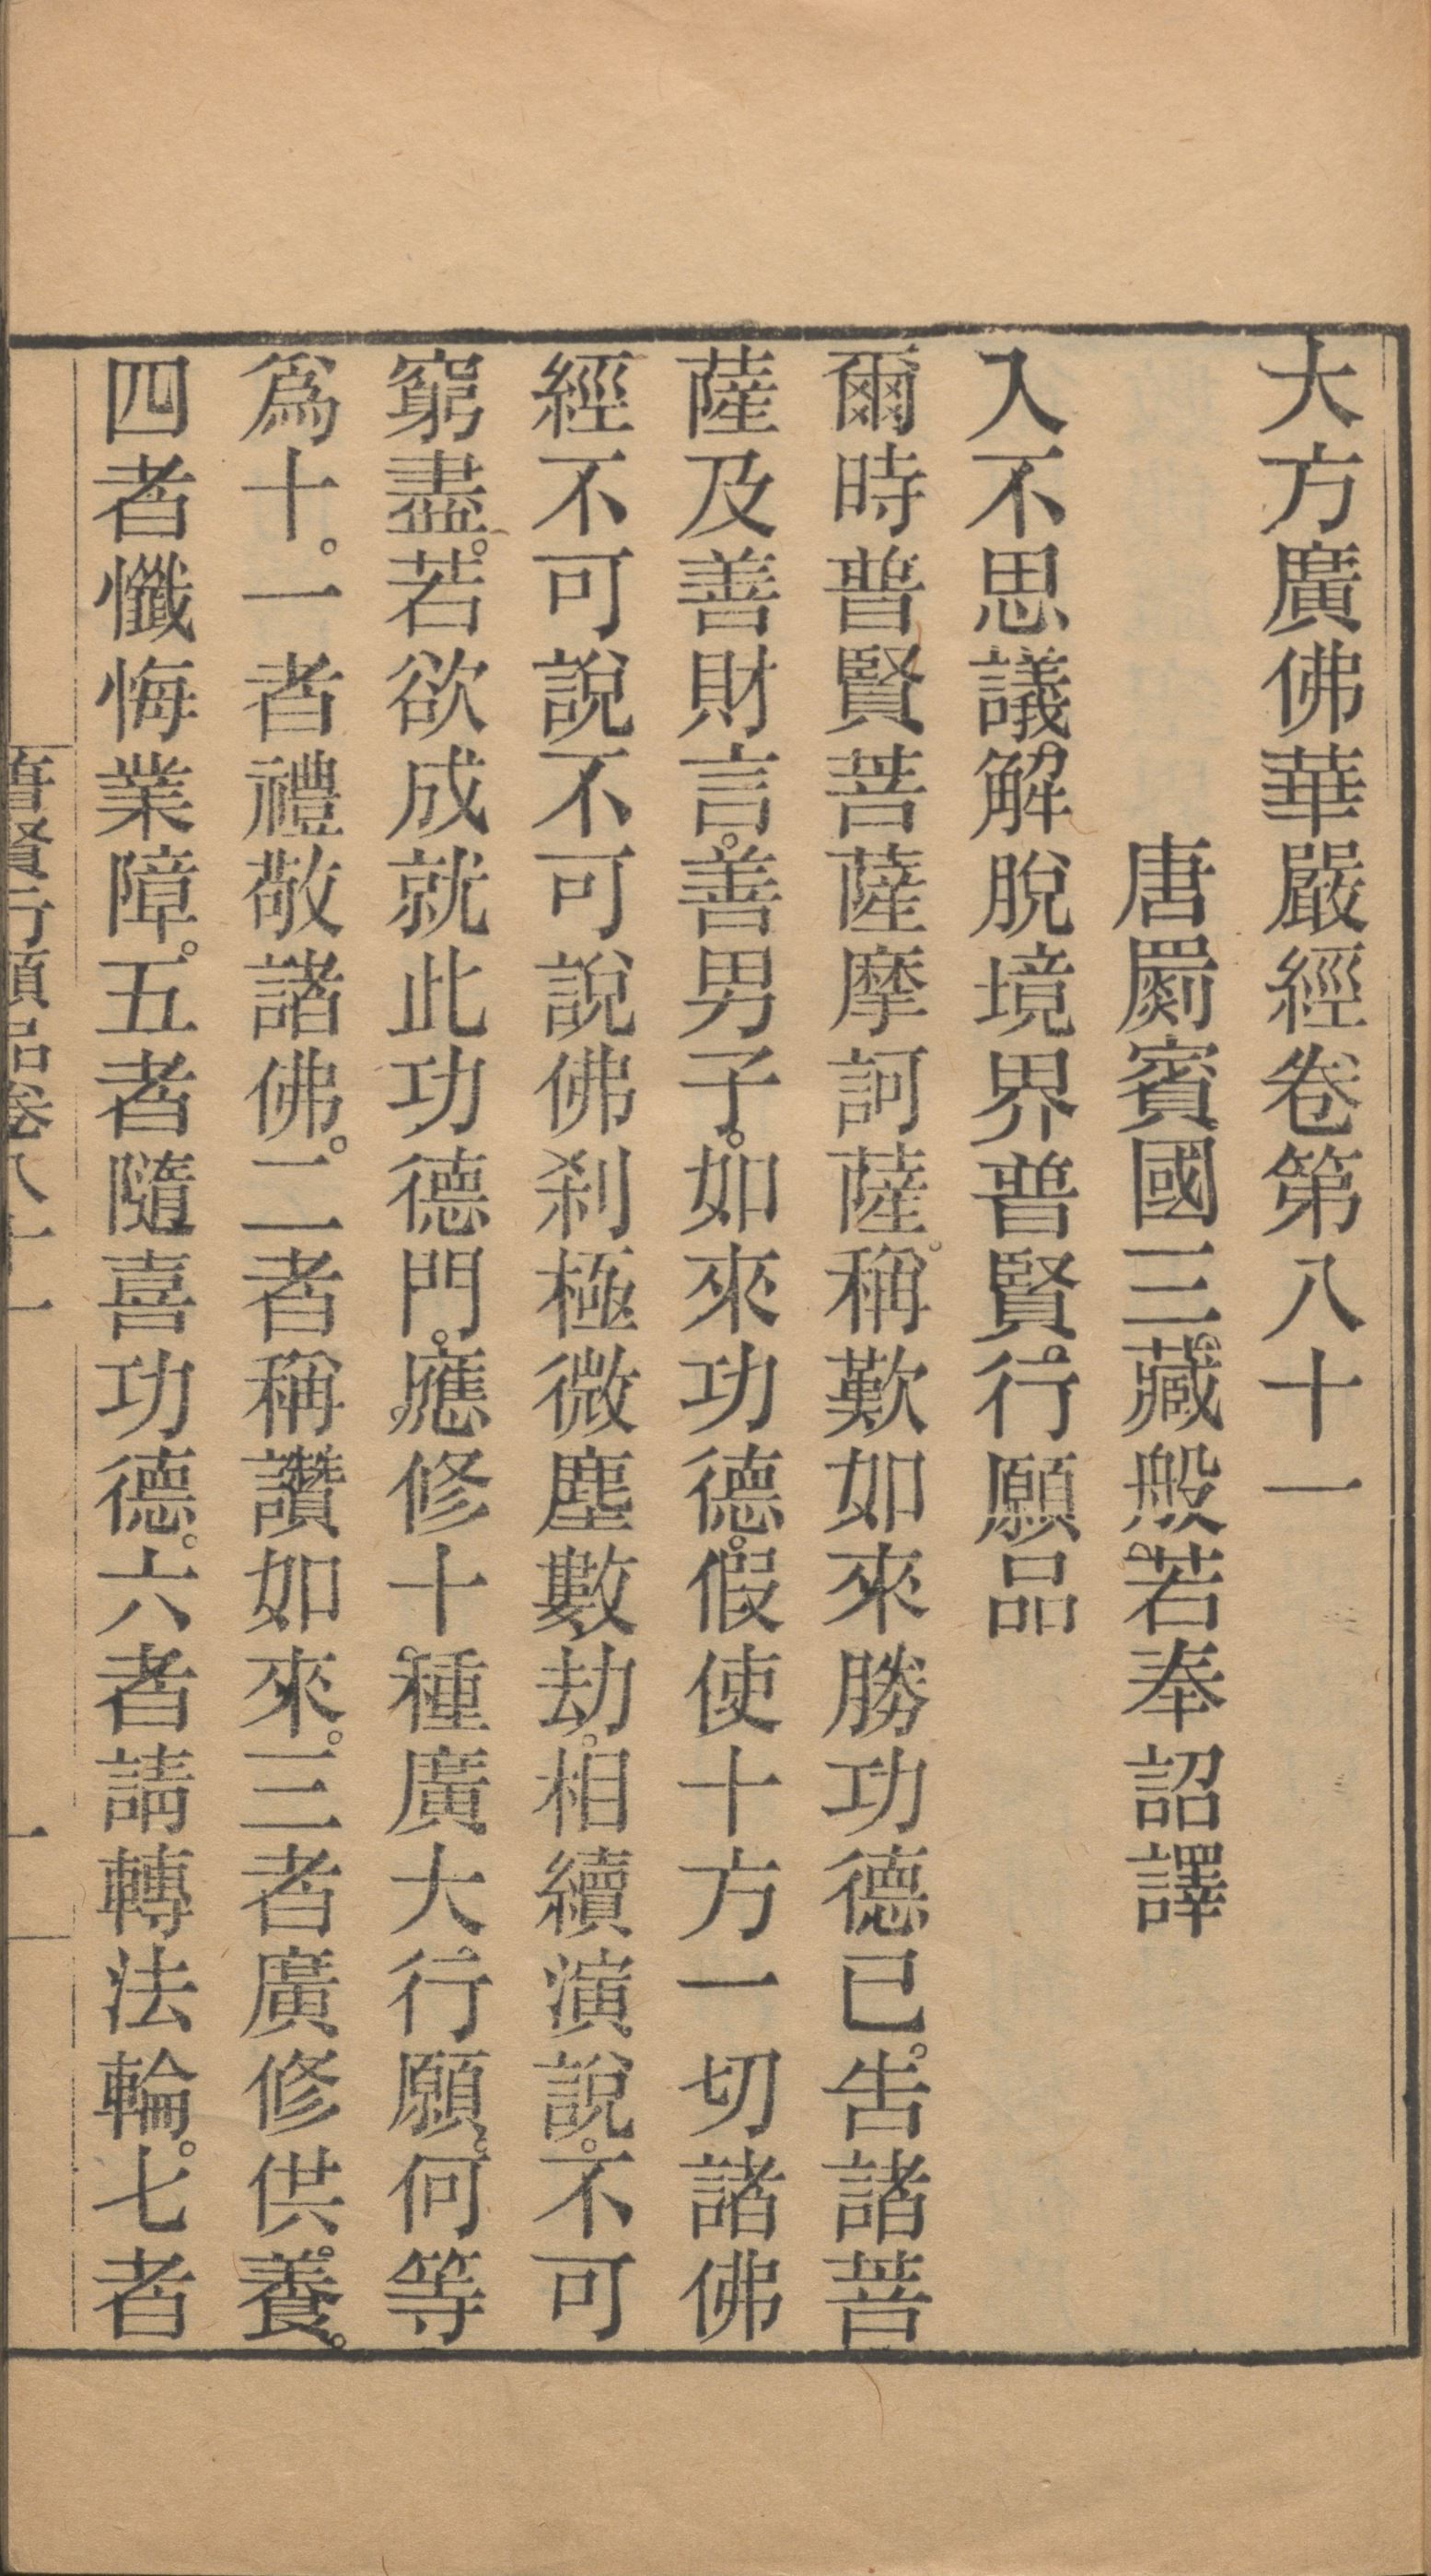 大方廣佛華嚴經卷第八十一
唐罽賓國三藏般若奉詔譯
入不思議解脫境界普賢行願品
爾時普賢菩薩摩訶薩。稱歎如來勝功德已。告諸菩
薩及善財言。善男子。如來功德。假使十方一切諸佛
經不可說不可說佛剎極微塵數劫。相續演說。不可
窮盡。若欲成就此功德門。應修十種廣大行願。何等
爲十。一者禮敬諸佛。二者稱讚如來。三者廣修供養。
四者懺悔業障。五者隨喜功德。六者請轉法輪。七者
普賢行願品卷八十一 一